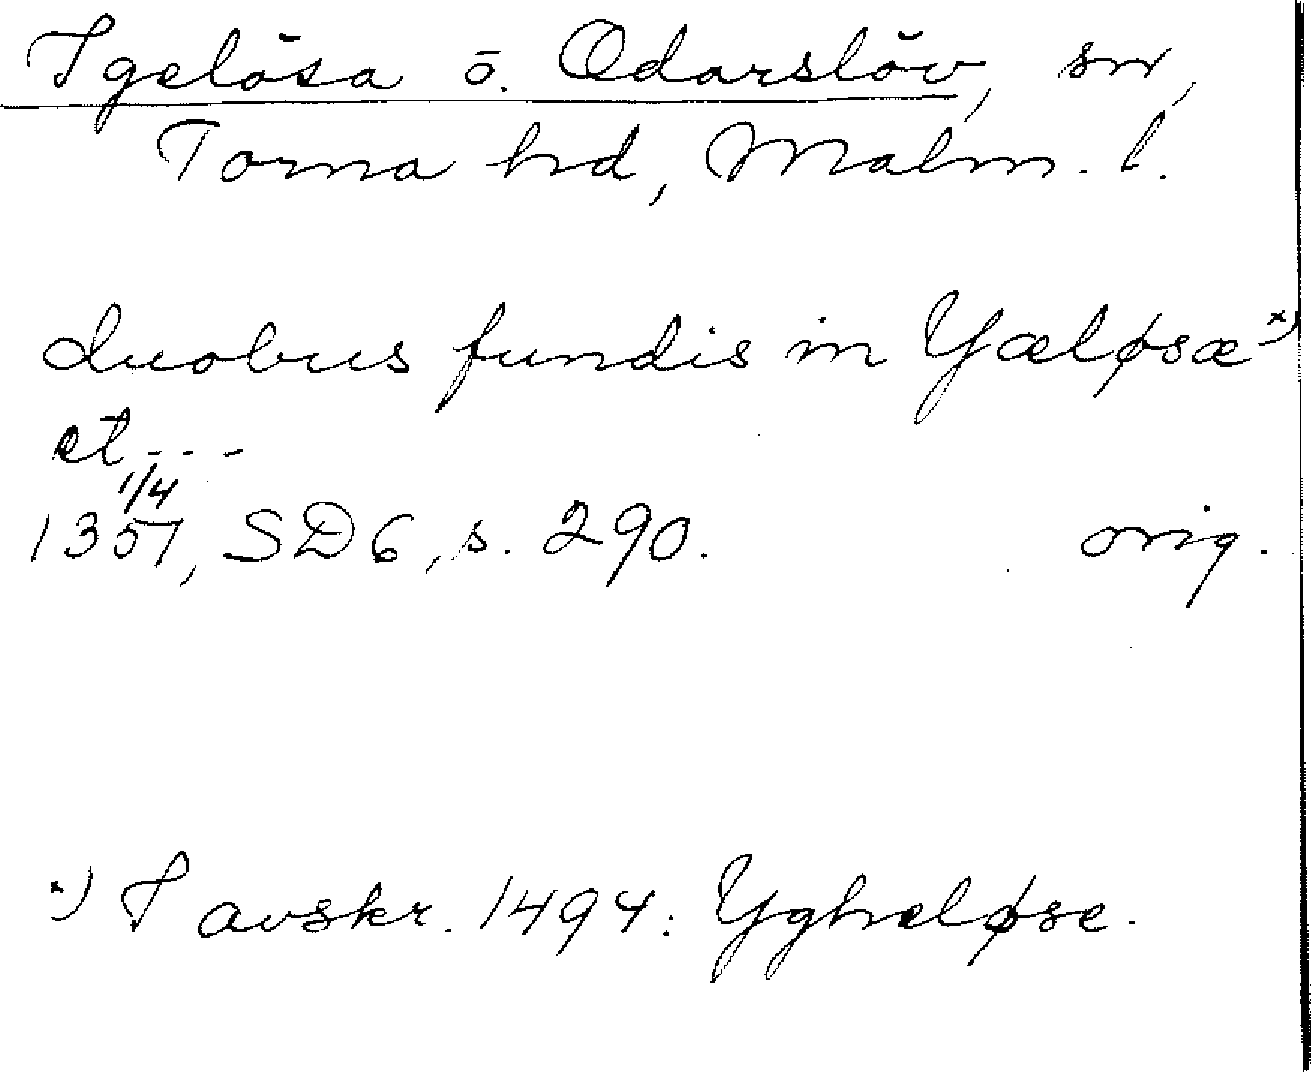 Igelösa o. Odarslöv, sn,
Torna hd, Malm. l.
duobus fundis in Yæløsæ x)
et - - -
1/4
1357, SD 6, s. 290. orig.
x) I avskr. 1494: Yghæløse.